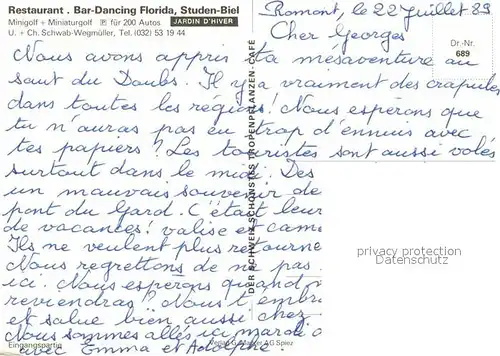 Restaurant . Bar-Dancing Florida, Studen-Biel
Minigolf + Miniaturgolf Ⓟ für 200 Autos JARDIN D'HIVER
U. + Ch. Schwab-Wegmüller, Tel. (032) 53 19 44
Romont, le 22 Juillet 89
Cher Georges
Dr.-Nr.
689
Nous avons appris ta mésaventure au
saut du Doubs. Il y a vraiment des crapules
dans toutes les régions! Nous espérons que
tu n'auras pas eu trop d'ennuis avec
tes papiers? Les touristes sont aussi volés
surtout dans le midi. Des
un mauvais souvenir de
pont du Gard. C'était leur
de vacances! valise et came
Ils ne veulent plus retourne
Nous regrettons de ne pas
ici. Nous espérons quand
reviendras? Nous t'embr
et salue bien aussi chez
Nous sommes allés ici mardi
avec Emma et Adolphe
DER SCHWEIZ SCHÖNSTES TROPENPFLANZEN-CAFÉ
privacy protection
Datenschutz
Eingangspartie
Verlag G. Maeder AG Spiez